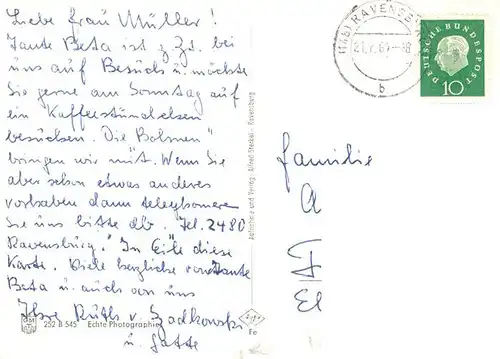 Liebe Frau Müller!
Tante Beta ist z. Zt. bei
uns auf Besuch u. möchte
Sie gerne am Sonntag auf
ein Kaffeestündchen
besuchen. Die "Bohnen"
bringen wir mit. Wenn Sie
aber schon etwas anderes
vorhaben dann
Sie uns bitte ab. Tel. 2480
Ravensburg. In Eile diese
Karte. Viele herzliche von Tante
Beta u. auch von uns
Ihre Ruth v. Zadkowski
u. Gatte
252 B 545 Echte Photographie
Aufnahme und Verlag: Alfred Steckel, Ravensburg
Fo
RAVENSBURG
b
DEUTSCHE BUNDESPOST
10
Familie
A
F
El